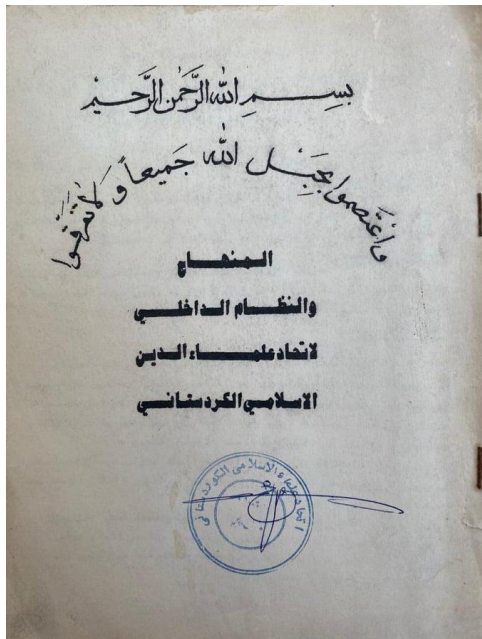 بِسْمِ اللهِ الرَّحْمٰنِ الرَّحِيْمِ
وَاعْتَصِمُوا بِحَبْلِ اللهِ جَمِيعاً وَلَا تَفَرَّقُوا
المنهاج
والنظام الداخلي
لاتحاد علماء الدين
الاسلامي الكردستاني
الاسلامي الكوردستاني